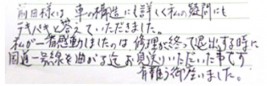 前田様は 車の構造にも詳しく私の疑問にも
テキパキと答えていただきました。
私が一番感動しましたのは 修理が終って退出する時に
国道一号線を曲がる迄お見送りいただいた事です
有難う御座いました。